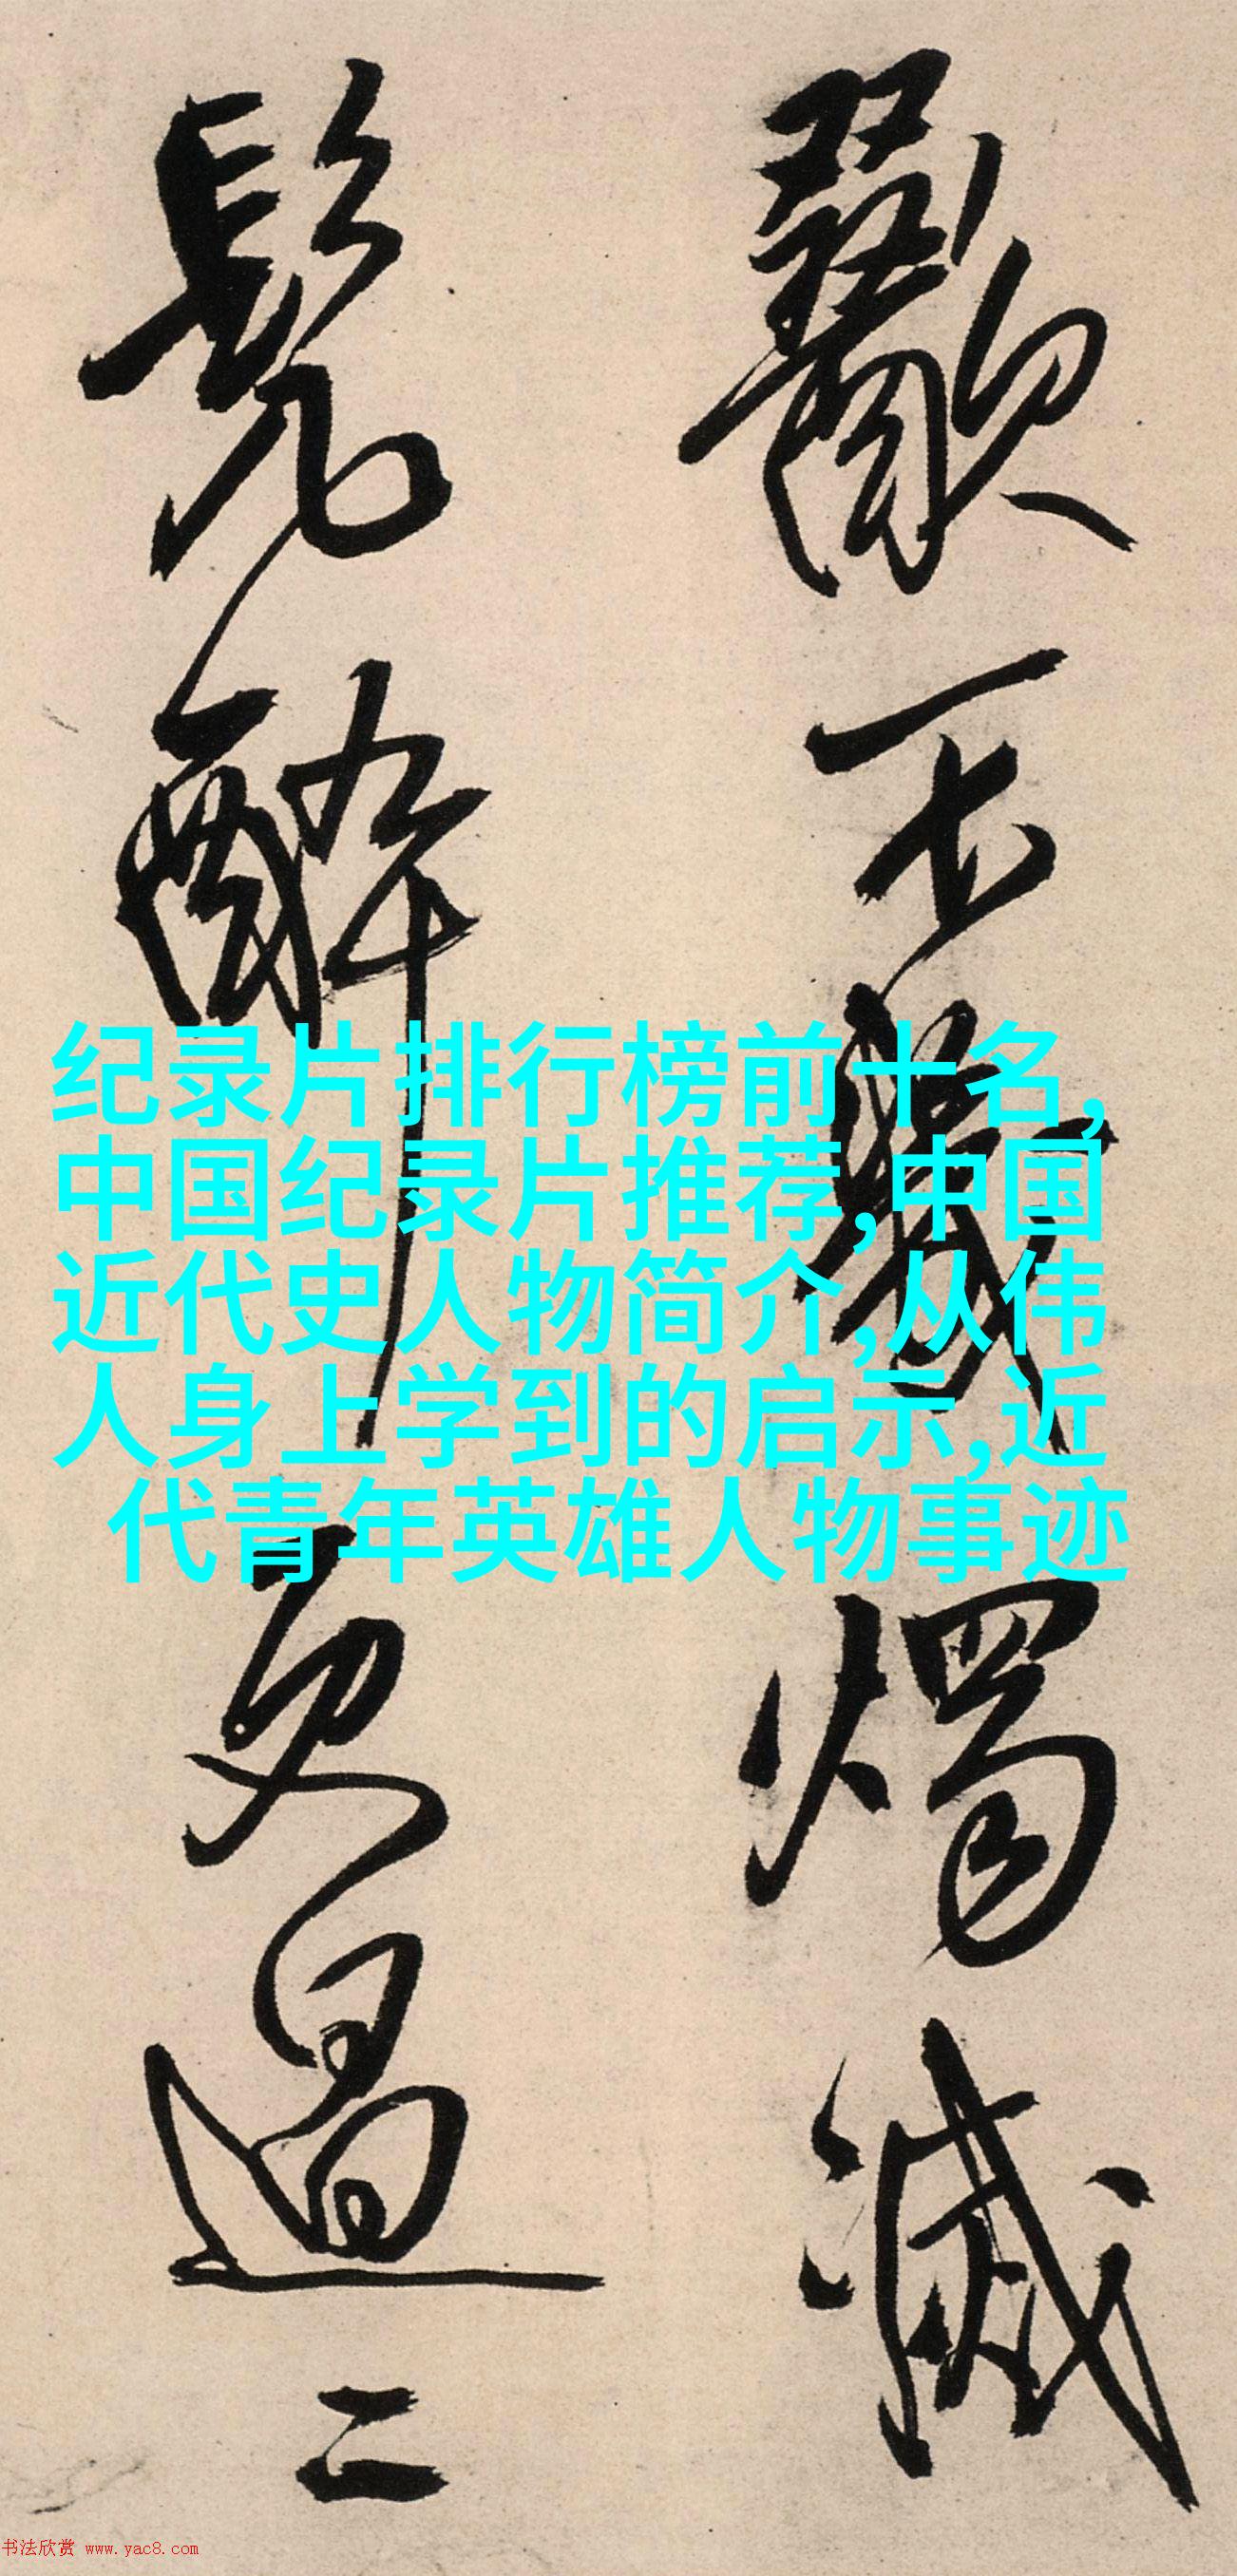 歠不义烛灭
鬓醉更过二
纪录片排行榜前十名,
中国纪录片推荐,中国
近代史人物简介,从伟
人身上学到的启示,近
代青年英雄人物事迹
书法欣赏 www.yac8.com